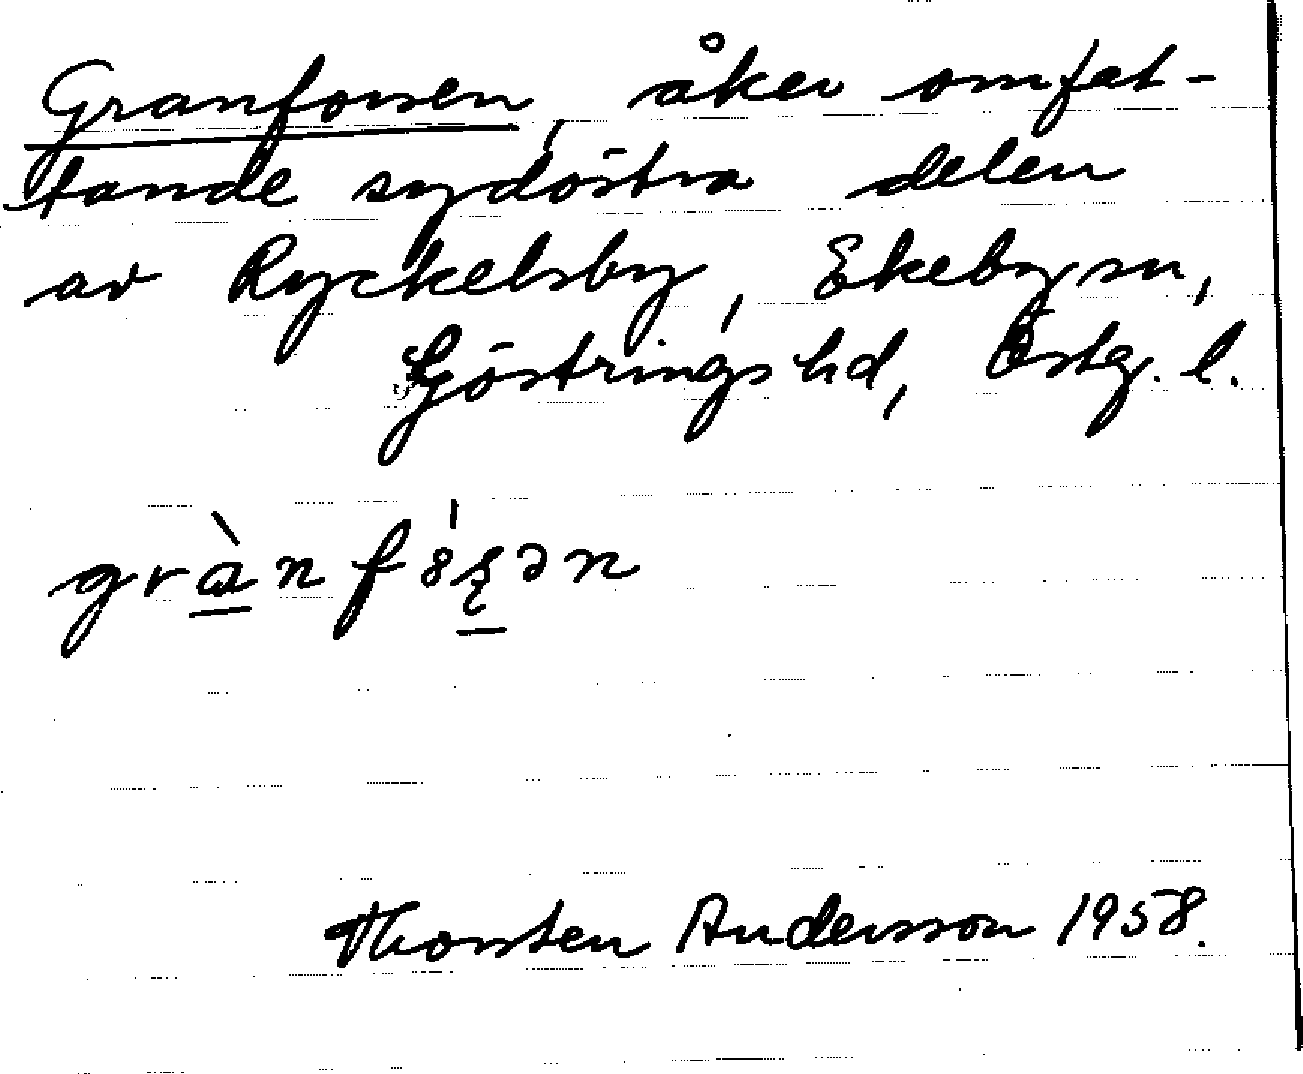 Granforsen, åker omfat-
tande sydöstra delen
av Ryckelsby, Ekeby sn,
Göstrings hd, Östg. l.
Thorsten Andersson 1958.